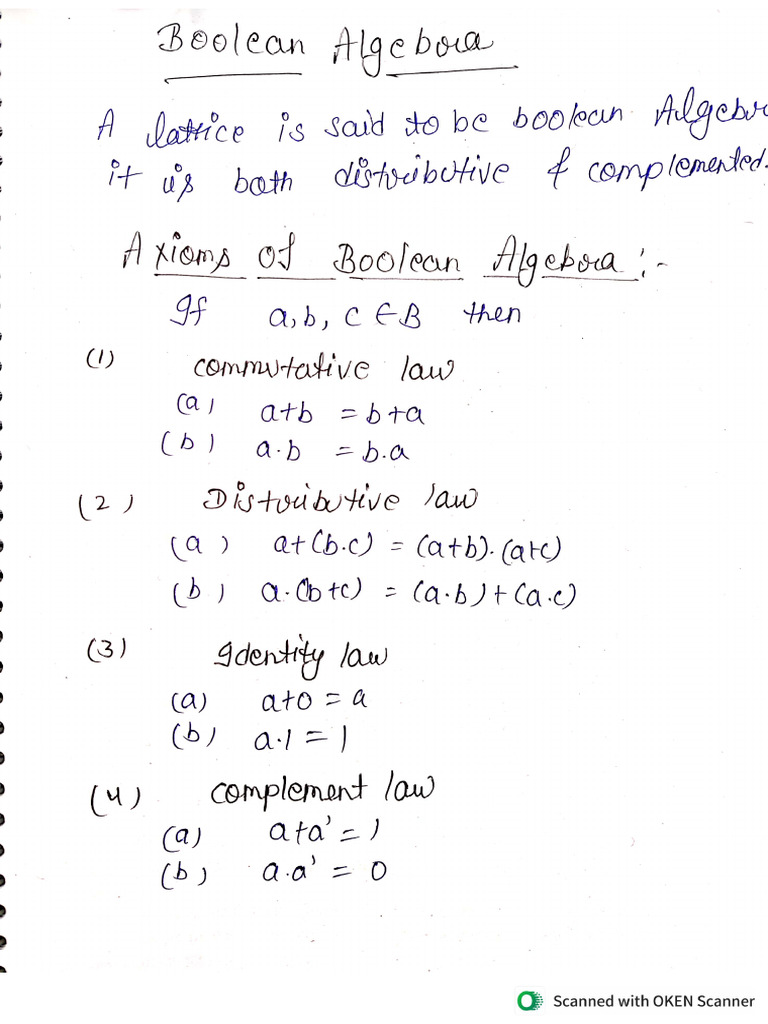 Boolean Algebra
A lattice is said to be boolean Algebr
it is both distributive & complemented.
Axioms of Boolean Algebra :-
If a, b, c ∈ B then
(1) commutative law
(a) a+b = b+a
(b) a.b = b.a
(2) Distributive law
(a) a+(b.c) = (a+b).(a+c)
(b) a.(b+c) = (a.b)+(a.c)
(3) Identity law
(a) a+0 = a
(b) a.1 = 1
(4) complement law
(a) a+a' = 1
(b) a.a' = 0
Scanned with OKEN Scanner